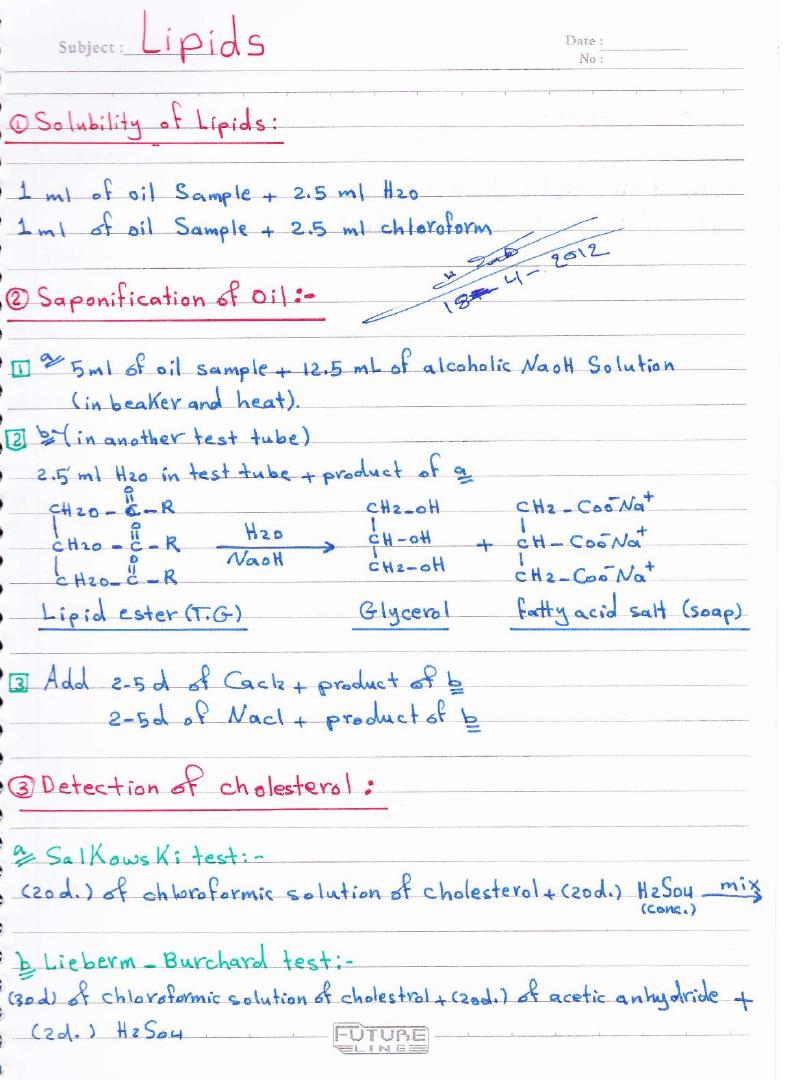 Subject: Lipids
Date:
No:
① Solubility of Lipids:
1 ml of oil Sample + 2.5 ml H2O
1 ml of oil Sample + 2.5 ml chloroform
18-4-2012
② Saponification of Oil:-
1 a 5ml of oil sample + 12.5 mL of alcoholic NaOH Solution
(in beaker and heat).
2 b (in another test tube)
2.5 ml H2O in test tube + product of a
O
CH2O - C - R CH2-OH CH2 - COO⁻Na⁺
O
CH2O - C - R H2O NaOH CH-OH + CH - COO⁻Na⁺
O
CH2O - C - R CH2-OH CH2 - COO⁻Na⁺
Lipid ester (T.G) Glycerol fatty acid salt (soap)
3 Add 2-5d of CaCl2 + product of b
2-5d of NaCl + product of b
③ Detection of cholesterol:
a SalKowsKi test:-
(20d.) of chloroformic solution of cholesterol + (20d.) H2SO4 mix
(conc.)
b Lieberm - Burchard test:-
(30d) of chloroformic solution of cholestrol + (20d.) of acetic anhydride +
(2d.) H2SO4
FUTURE
LINE